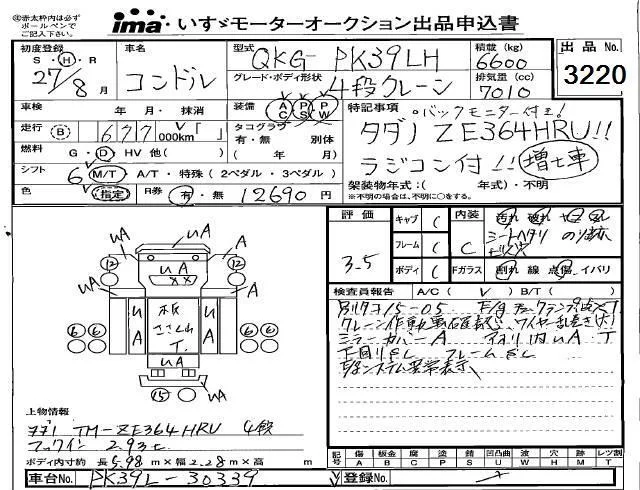 ◎赤太枠内は必ず
ボールペンで
ご記入下さい。
ima いすゞモーターオークション出品申込書
初度登録
S・H・R
27/8月
車名
コンドル
型式
QKG-PK39LH
グレード・ボディ形状
4段クレーン
積載(kg)
6600
排気量(cc)
7010
出品No.
3220
車検 年・月・抹消
走行 B 677 000km「 」
燃料 G・D・HV 他( )
シフト 6 M/T・A/T・特殊(2ペダル・3ペダル)
色 (指定) R券 有・無 12690円
装備 AC PS PW
タコグラフ
有・無 別体
( 年 月)
特記事項
○バックモニター付き!
タダノ ZE364HRU!!
ラジコン付!! 増トン車
架装物年式:( 年式)・不明
※不明の場合は、不明に○をする。
評価
3.5
キャブ
フレーム
ボディ
内装
C
Fガラス
汚れ 破れ
シートヘタリ
割れ 線 点傷 イバリ
uA uA A
12 uA 12
××
6 6 uA 板 uA 6 6
T
uA
15
検査員報告 A/C( ) B/T( )
クレーン作動未確認
ミラーカバーA アオリ内uA T
下回りSC フレームSC
上物情報
タダノ TM-ZE364HRU 4段
フックイン 2.93t
ボディ内寸約 長5.98m×幅2.28m×高 m
記号 傷A 板金B 腐C 塗P 錆S 凹凸曲U 波W 穴H 跡M レツ割T
車台No. PK39L-30339
登録No.